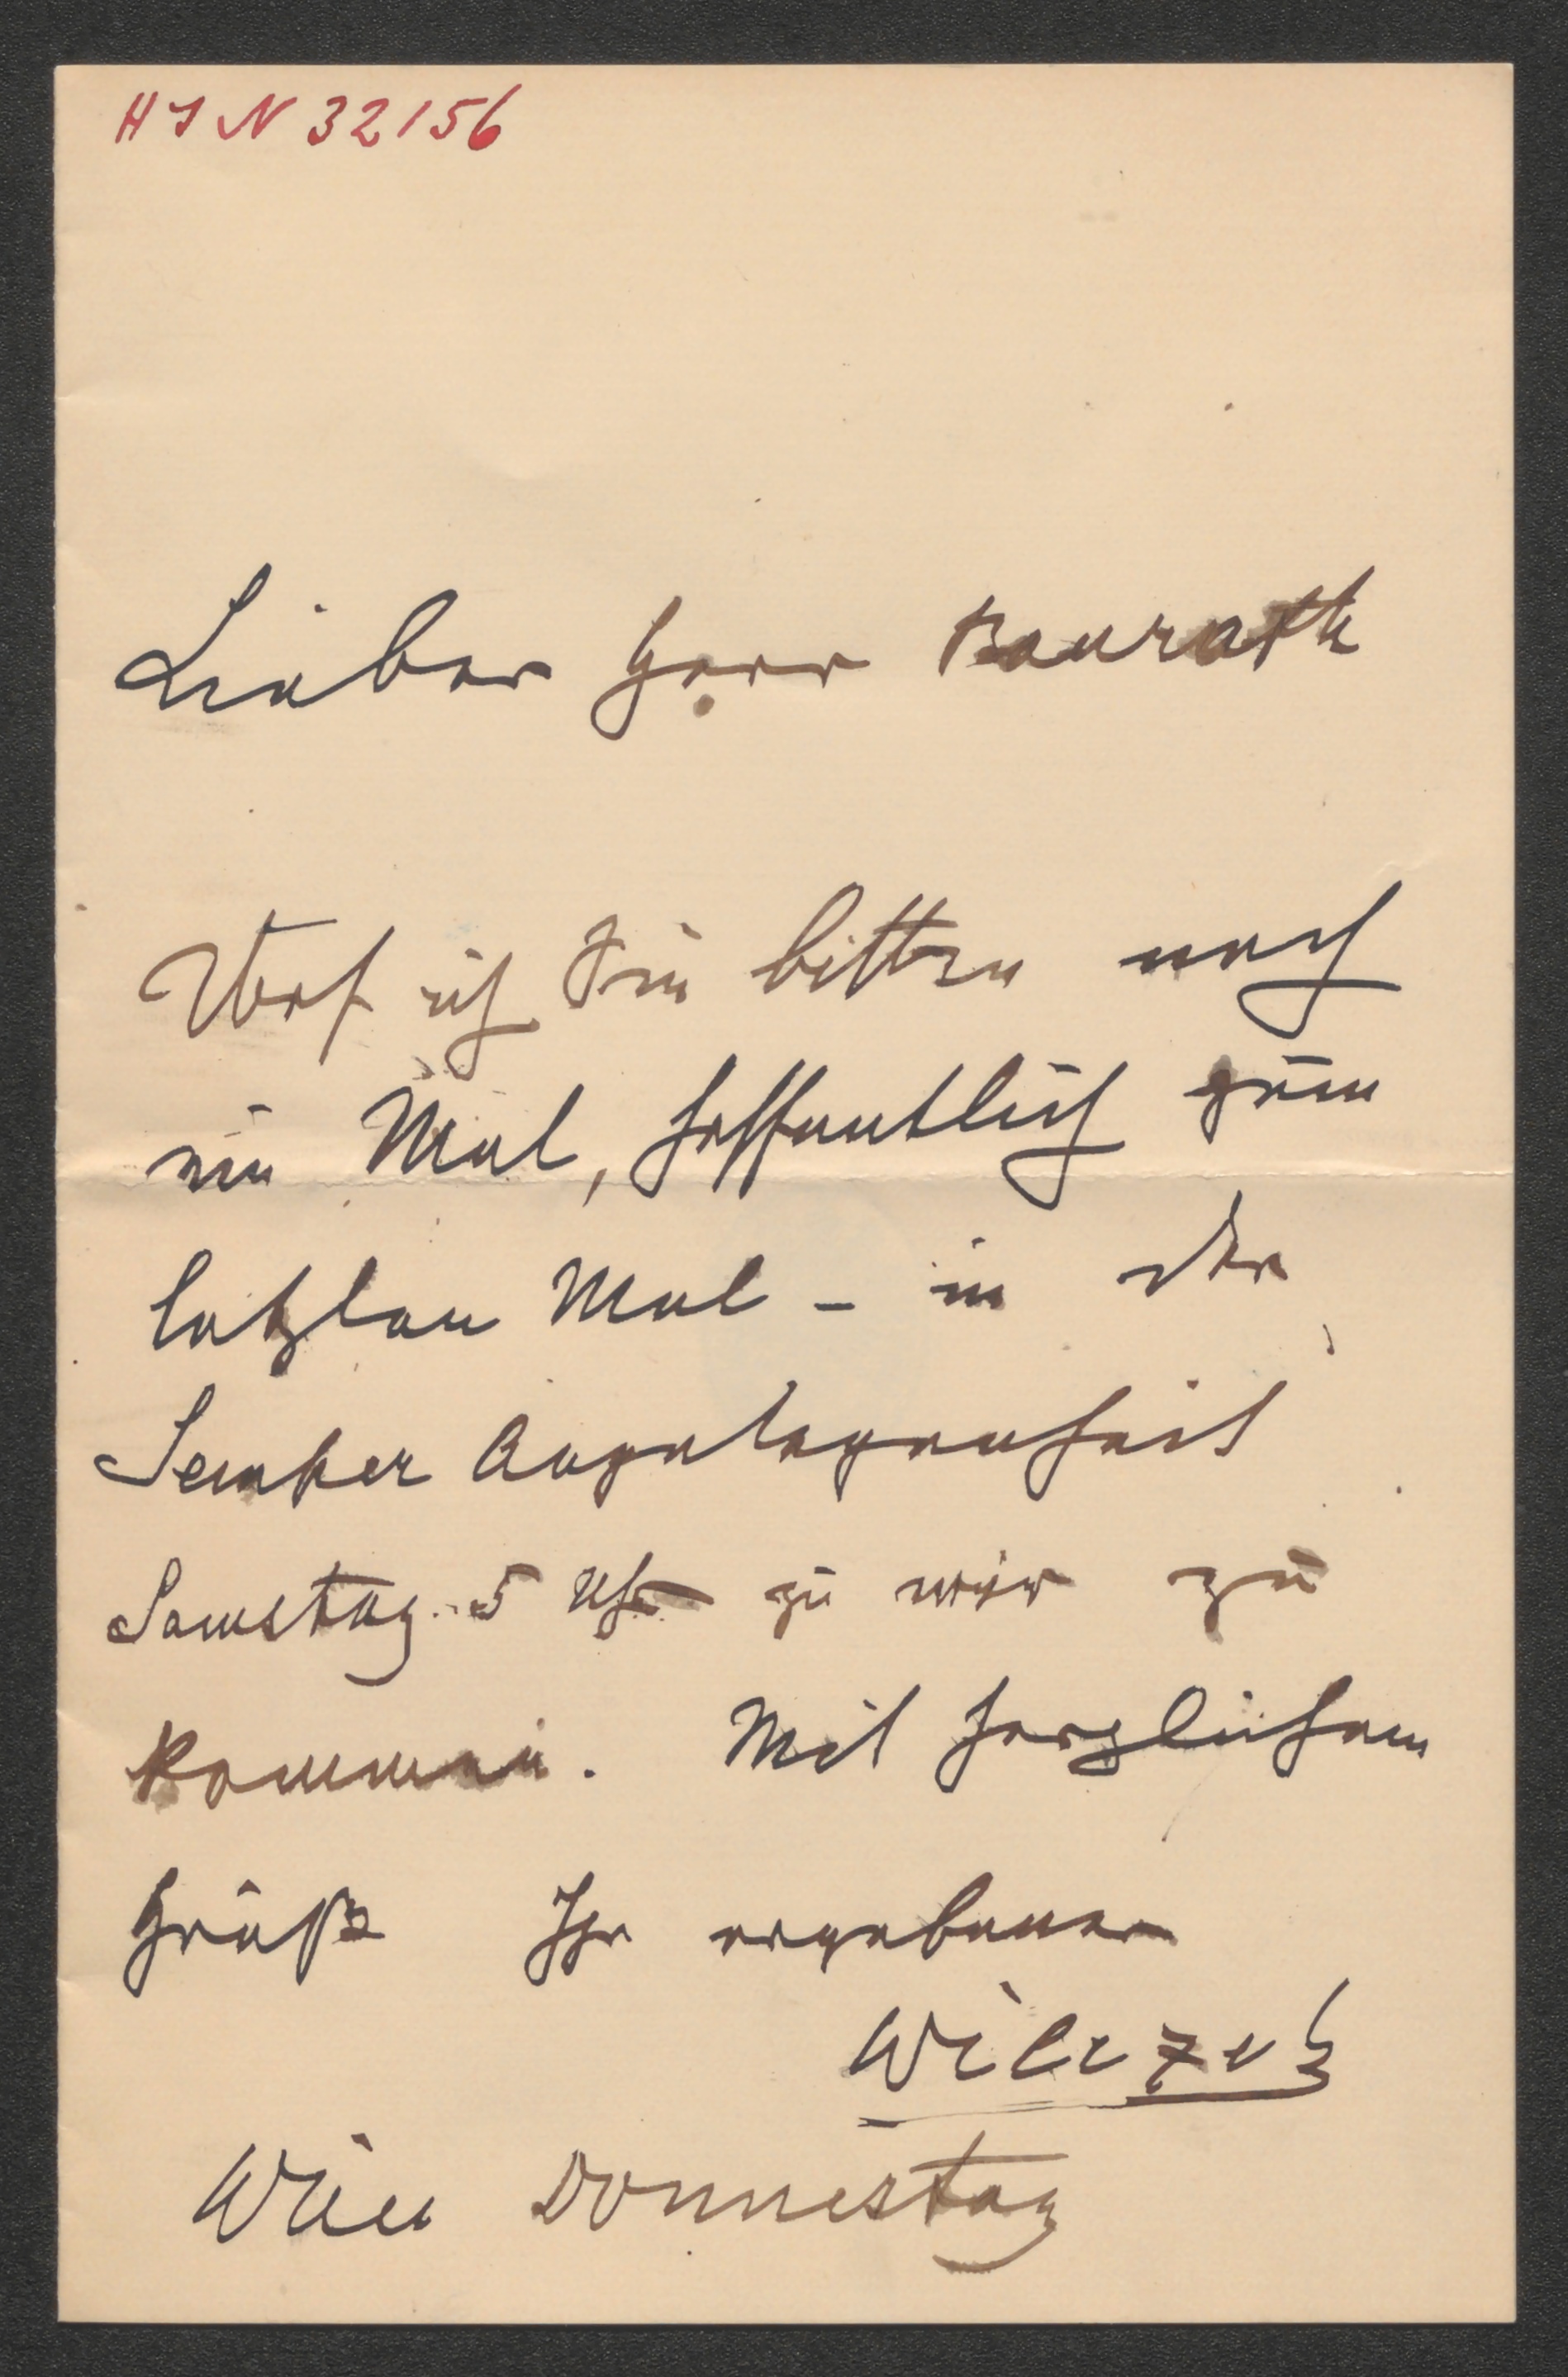 HIN 32156
Lieber Herr Baurath
Darf ich Sie bitten noch
ein Mal, hoffentlich zum
letzten Mal – in der
Semper Angelegenheit
Samstag 5 Uhr zu mir zu
kommen. Mit herzlichem
Gruße Ihr ergebener
Wilczek
Wien Donnerstag